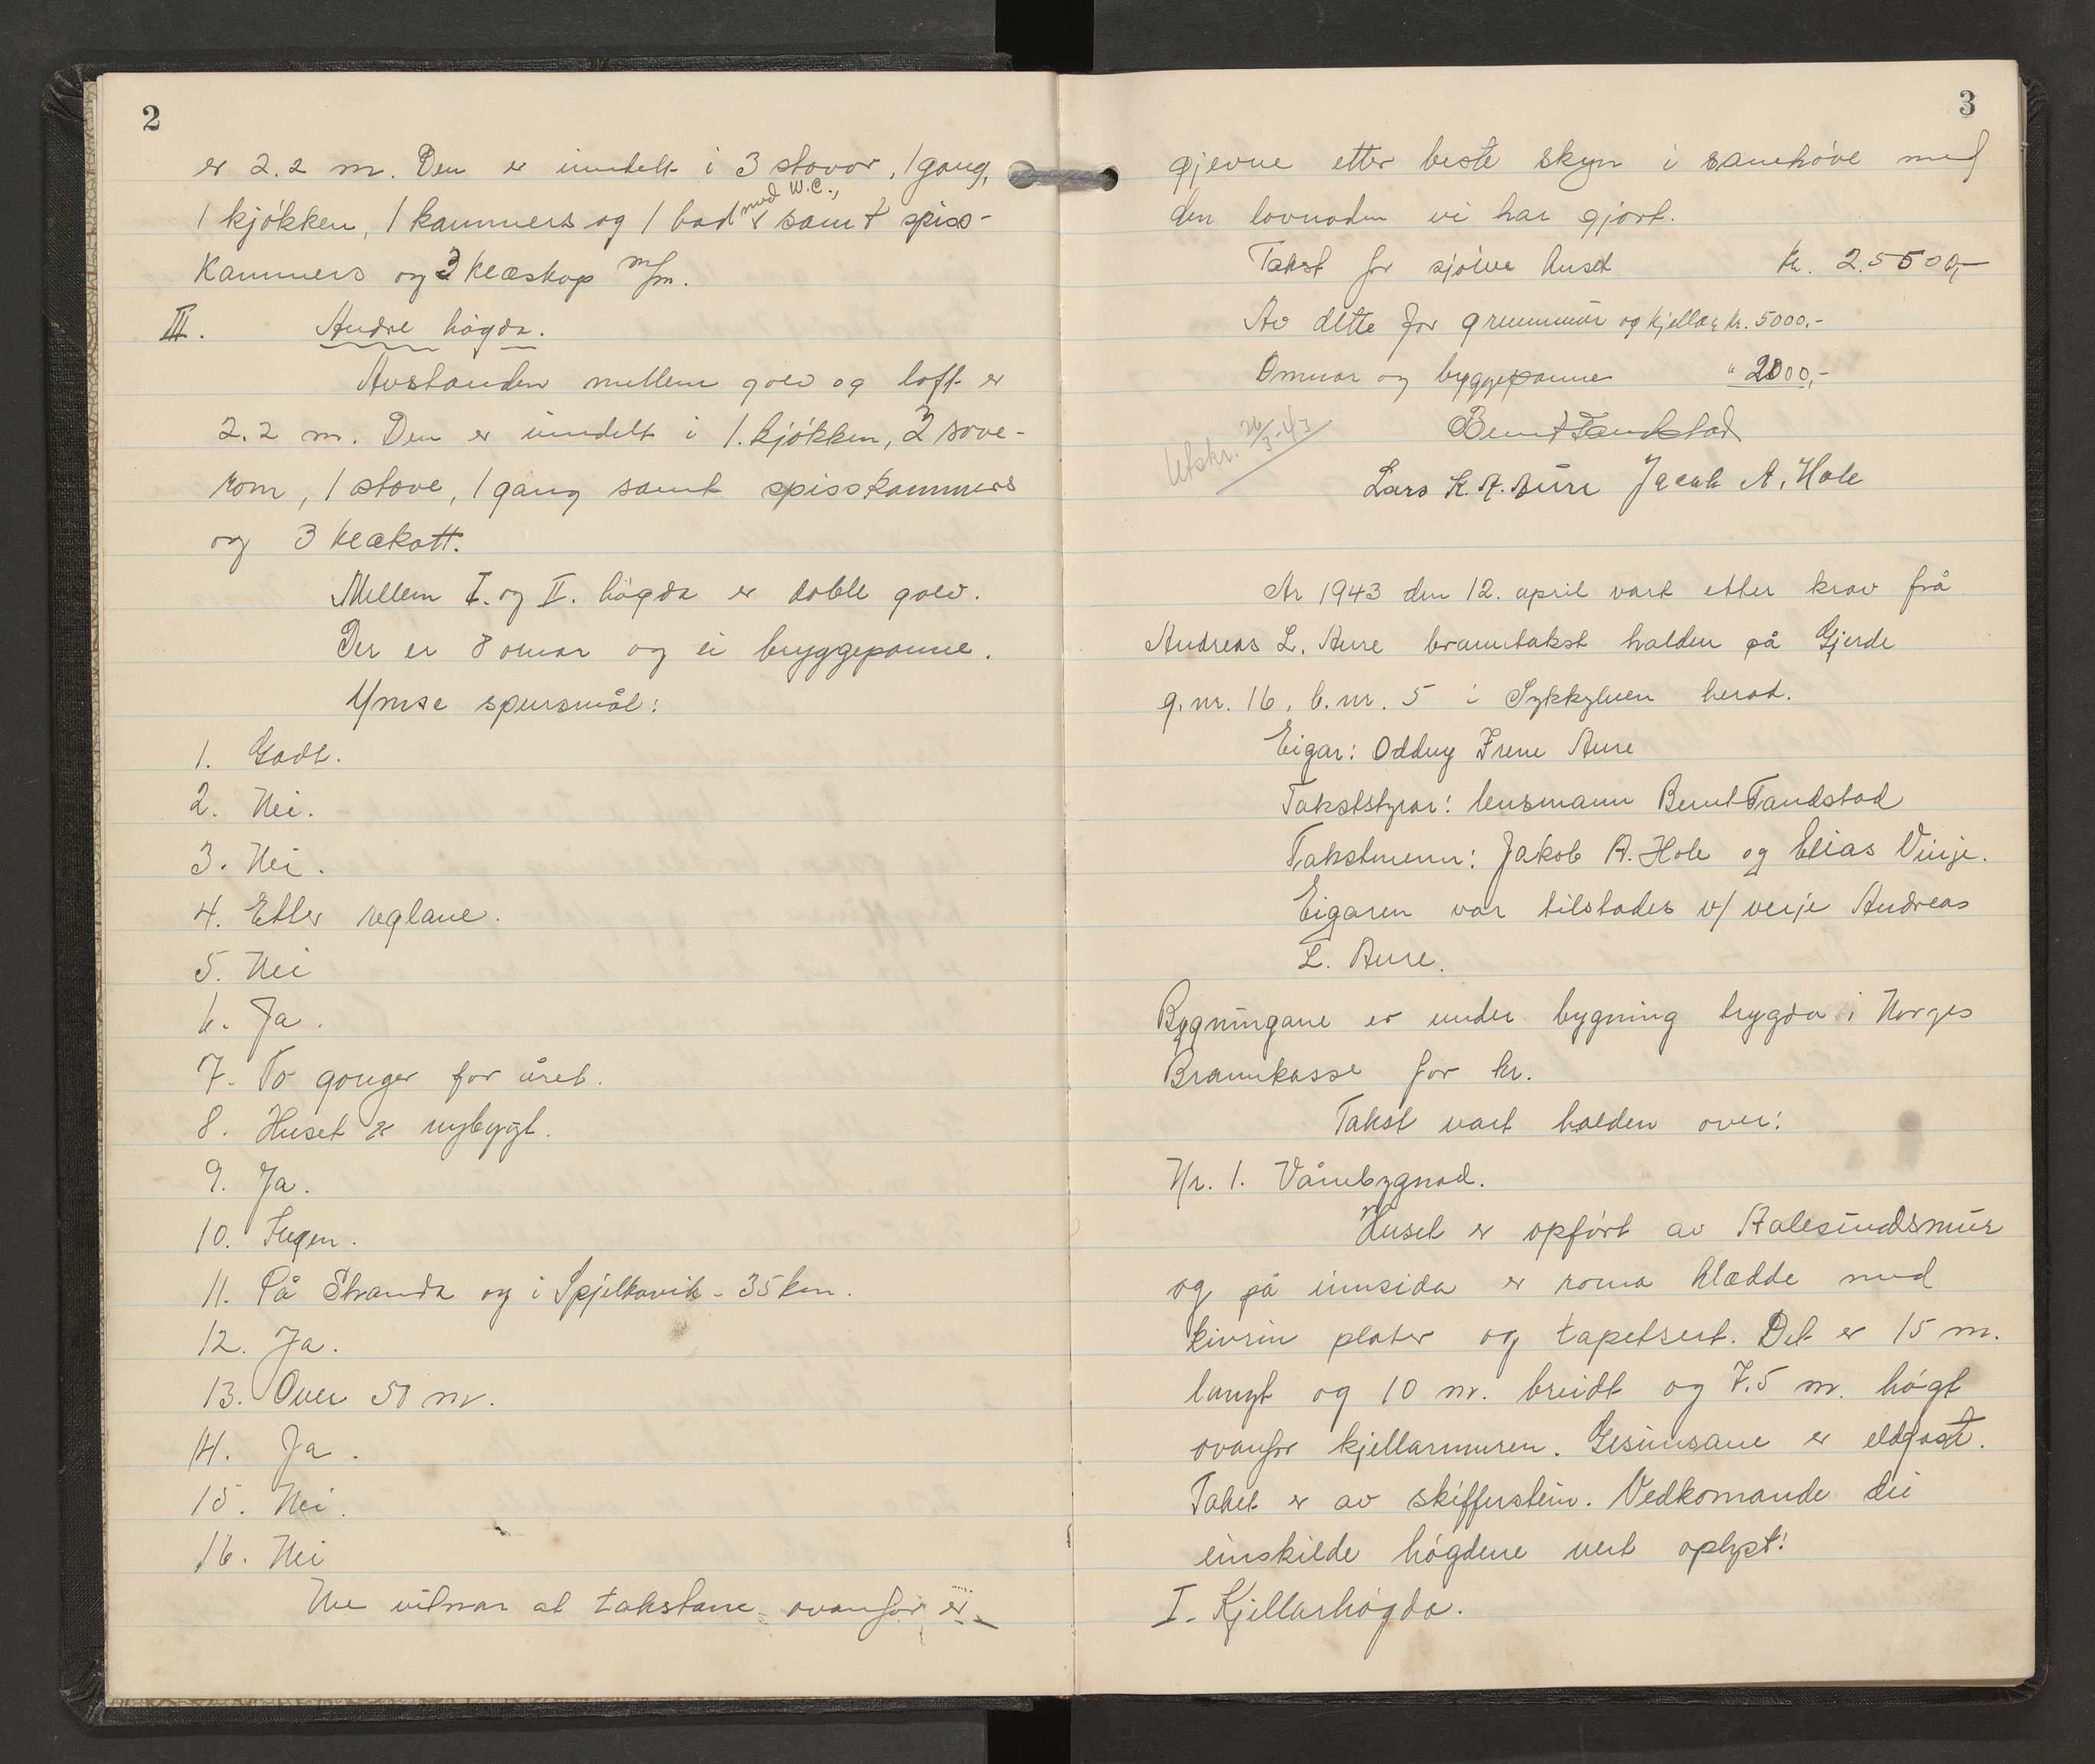 2
er 2.2 m. Den er inndelt i 3 stovor, 1 gang,
med W.C.,
1 kjøkken, 1 kammers og 1 bad samt spiss-
kammers og 3 klæskap m/m.
II. Andre høgda.
Avstanden mellem golv og loft er
2.2 m. Den er inndelt i 1. kjøkken, 3 sove-
rom, 1 stove, 1 gang samt spisskammers
og 3 klækott.
Mellem I. og II. høgda er doble golv.
Der er 8 omnar og ei bryggepanne.
Ymse spursmål:
1. Godt.
2. Nei.
3. Nei.
4. Etter reglane.
5. Nei
6. Ja.
7. To gonger for året.
8. Huset er nybygt.
9. Ja.
10. Ingen.
11. På Stranda og i Spjelkavik - 35 km.
12. Ja.
13. Over 50 m.
14. Ja.
15. Nei.
16. Nei
Me vitnar at takstane ovanfor er
3
gjevne etter beste skyn i samhøve med
den lovnaden vi har gjort.
Takst for sjølve huset kr. 25500,-
Av dette for grunnmur og kjellar kr. 5000.-
Omnar og bryggepanne " 2000,-
Utskr. 26/3-43
Bernt Tandstad
Lars K. A. Aure Jacob A. Hole
År 1943 den 12. april vart etter krav frå
Andreas L. Aure branntakst halden på Gjerde
g.nr. 16, b.nr. 5 i Sykkylven herad.
Eigar: Oddny Irene Aure
Takststyrar: lensmann Bernt Tandstad
Takstmenn: Jakob A. Hole og Elias Vinje.
Eigaren var tilstades v/ verje Andreas
L. Aure.
Bygningane er under bygning trygda i Norges
Brannkasse for kr.
Takst vart halden over:
Nr. 1. Våningbygnad.
Huset er opført av Aalesundsmur
og på innsida er roma klædde med
plater og tapetsert. Det er 15 m.
langt og 10 m. breidt og 7.5 m. høgt
ovanfor kjellarmuren. Gesimsane er eldfast.
Taket er av skifferstein. Vedkomande dei
einskilde høgdene vert oplyst:
I. Kjellarhøgda.